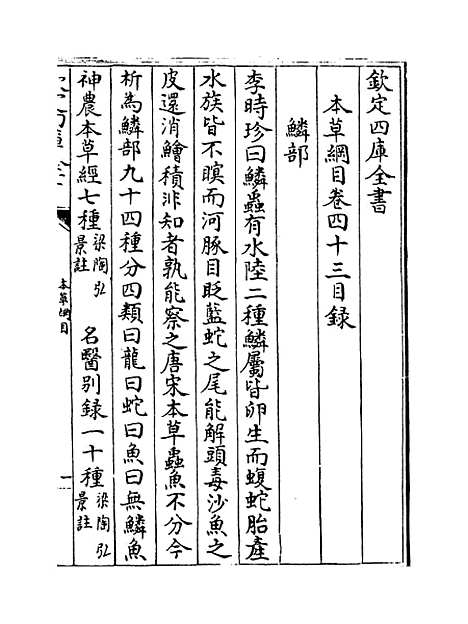 欽定四庫全書
本草綱目卷四十三目録
鱗部
李時珍曰鱗蟲有水陸二種鱗屬皆卵生而蝮蛇胎產
水族皆不瞑而河豚目眨藍蛇之尾能解頭毒沙魚之
皮還消鱠積非知者孰能察之唐宋本草蟲魚不分今
析為鱗部九十四種分四類曰龍曰蛇曰魚曰無鱗魚
神農本草經七種梁陶弘景註 名醫别録一十種梁陶弘景註
本草綱目
一